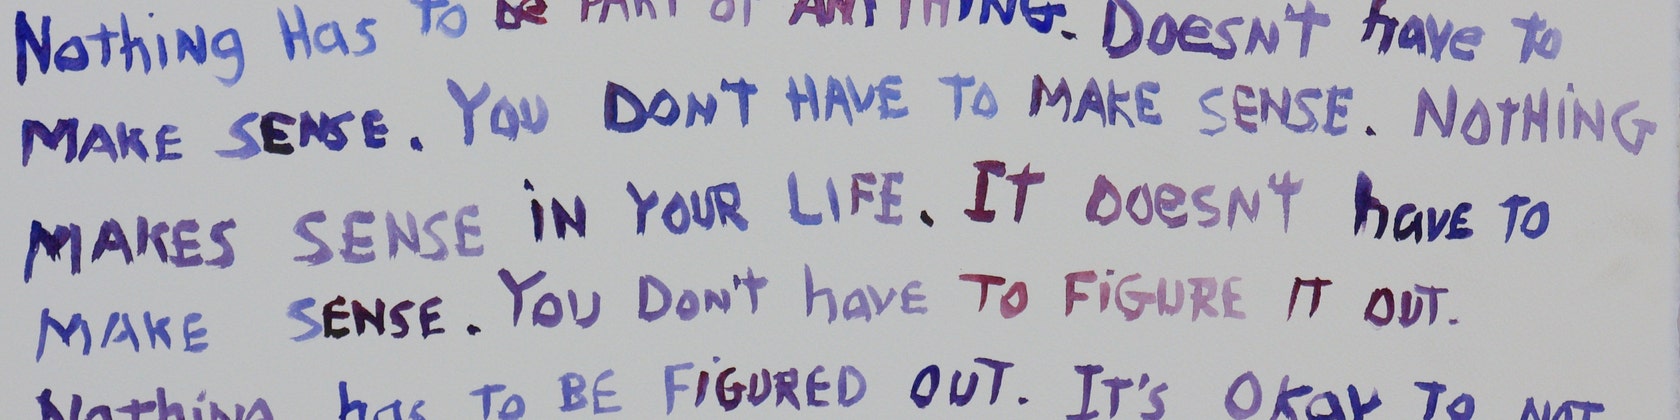 Nothing Has to be PART OF ANYTHING. Doesn't have to
MAKE SENSE. You DON'T HAVE TO MAKE SENSE. NOTHING
MAKES SENSE iN YOUR LIFE. IT DOesN't have to
MAKE SENSE. You Don't have TO FiGURE IT OUT.
Nothing has to BE FiGURED OUT. IT's Okay To NOT